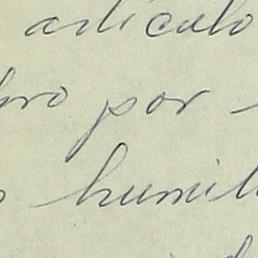 articulo
bro por
humil